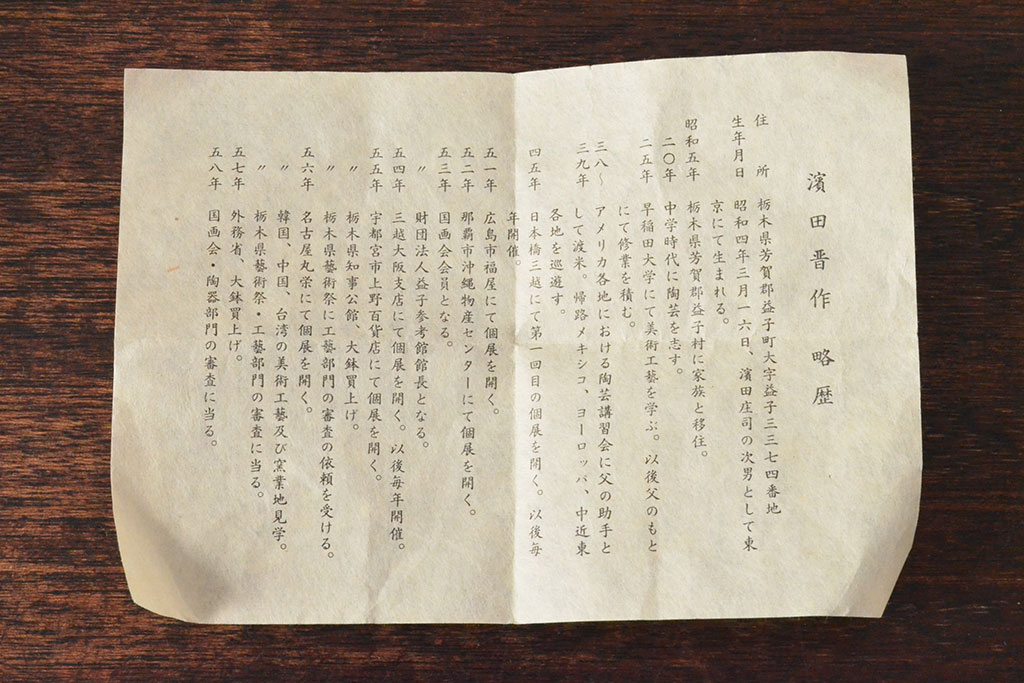 濱田晋作 略歴
住所 栃木県芳賀郡益子町大字益子三三七四番地
生年月日 昭和四年三月一六日、濱田庄司の次男として東
京にて生まれる。
昭和五年 栃木県芳賀郡益子村に家族と移住。
二〇年 中学時代に陶芸を志す。
二五年 早稲田大学にて美術工藝を学ぶ。以後父のもと
にて修業を積む。
三八〜 アメリカ各地における陶芸講習会に父の助手と
三九年 して渡米。帰路メキシコ、ヨーロッパ、中近東
各地を巡遊す。
四五年 日本橋三越にて第一回目の個展を開く。以後毎
年開催。
五一年 広島市福屋にて個展を開く。
五二年 那覇市沖縄物産センターにて個展を開く。
五三年 国画会会員となる。
〃 財団法人益子参考館館長となる。
五四年 三越大阪支店にて個展を開く。以後毎年開催。
五五年 宇都宮市上野百貨店にて個展を開く。
〃 栃木県知事公館、大鉢買上げ。
〃 栃木県藝術祭に工藝部門の審査の依頼を受ける。
五六年 名古屋丸栄にて個展を開く。
〃 韓国、中国、台湾の美術工藝及び窯業地見学。
〃 栃木県藝術祭・工藝部門の審査に当る。
五七年 外務省、大鉢買上げ。
五八年 国画会・陶器部門の審査に当る。